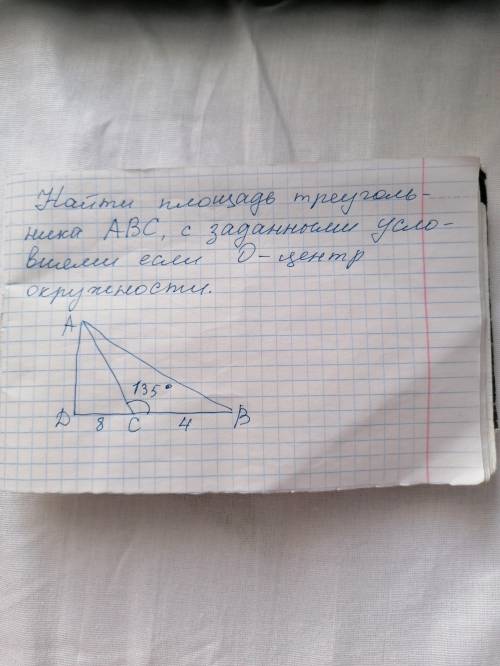 Найти площадь треуголь-
ника ABC, с заданными усло-
виями если D - центр
окружности.
A
135°
D 8 C 4 B